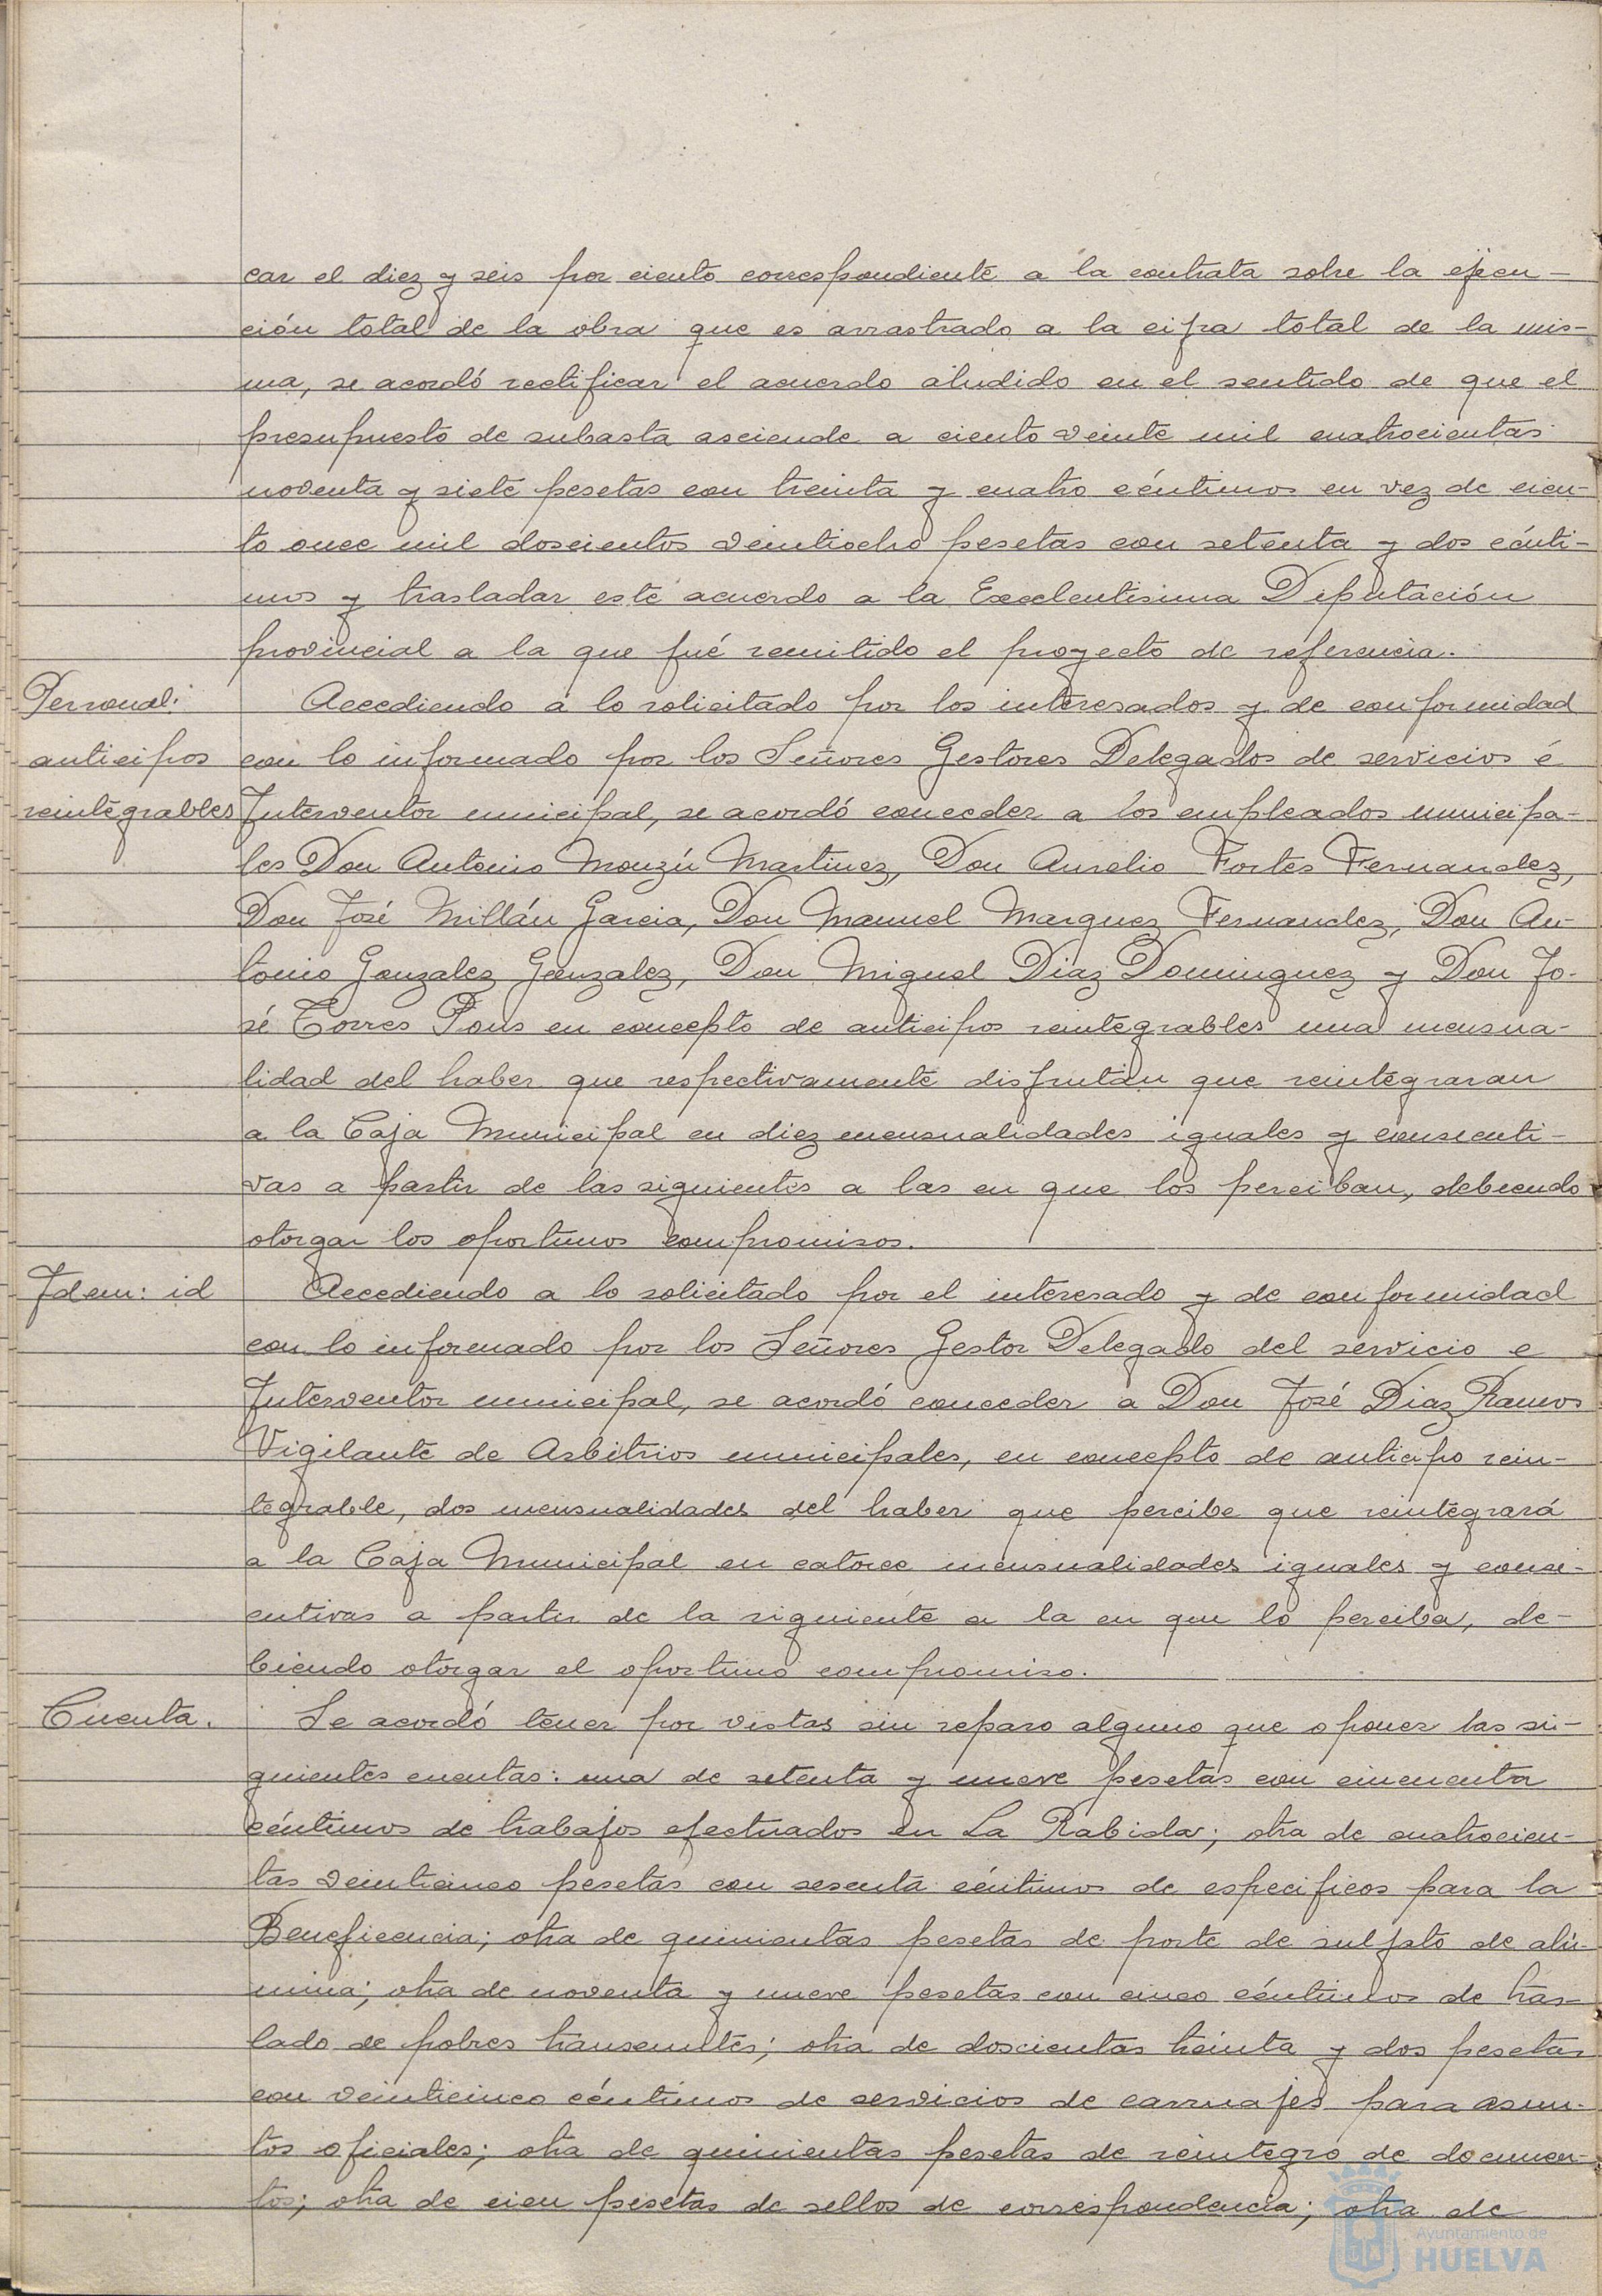 car el diez y seis por ciento correspondiente a la contrata sobre la ejecu-
ción total de la obra que es arrastrado a la cifra total de la mis-
ma, se acordó rectificar el acuerdo aludido en el sentido de que el
presupuesto de subasta asciende a ciento veinte mil cuatrocientas
noventa y siete pesetas con treinta y cuatro céntimos en vez de cien-
to once mil doscientos veintiocho pesetas con setenta y dos cénti-
mos y trasladar este acuerdo a la Excelentisima Diputación
provincial a la que fué remitido el proyecto de referencia.
Personal:
anticipos
reintegrables
Accediendo a lo solicitado por los interesados y de conformidad
con lo informado por los Señores Gestores Delegados de servicios é
Interventor municipal, se acordó conceder a los empleados municipa-
les Don Antonio Monzú Martinez, Don Aurelio Fortes Fernandez,
Don José Millán Garcia, Don Manuel Marquez Fernandez, Don An-
tonio Gonzalez Gonzalez, Don Miguel Diaz Dominguez y Don Jo-
sé Torres Pons en concepto de anticipos reintegrables una mensua-
lidad del haber que respectivamente disfrutan que reintegraran
a la Caja Municipal en diez mensualidades iguales y consecuti-
vas a partir de las siguientes a las en que los perciban, debiendo
otorgar los oportunos compromisos.
Idem: id
Accediendo a lo solicitado por el interesado y de conformidad
con lo informado por los Señores Gestor Delegado del servicio e
Interventor municipal, se acordó conceder a Don José Diaz Ramos
Vigilante de Arbitrios municipales, en concepto de anticipo rein-
tegrable, dos mensualidades del haber que percibe que reintegrará
a la Caja Municipal en catorce mensualidades iguales y conse-
cutivas a partir de la siguiente a la en que lo perciba, de-
biendo otorgar el oportuno compromiso.
Cuenta.
Se acordó tener por vistas sin reparo alguno que oponer las si-
guientes cuentas: una de setenta y nueve pesetas con cincuenta
céntimos de trabajos efectuados en La Rabida; otra de cuatrocien-
tas veinticinco pesetas con sesenta céntimos de especificos para la
Beneficencia; otra de quinientas pesetas de porte de sulfato de alú-
mina; otra de noventa y nueve pesetas con cinco céntimos de tras-
lado de pobres transeuntes; otra de doscientas treinta y dos pesetas
con veinticinco céntimos de servicios de carruajes para asun-
tos oficiales; otra de quinientas pesetas de reintegro de documen-
tos; otra de cien pesetas de sellos de correspondencia; otra de
Ayuntamiento de
HUELVA